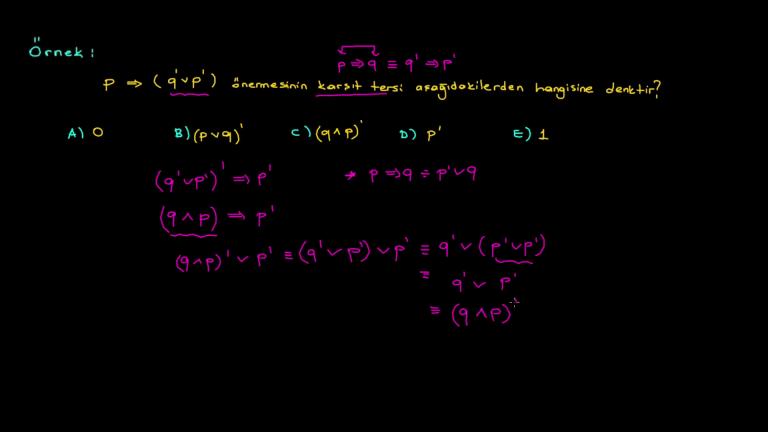 Örnek:
p ⇒ q ≡ q' ⇒ p'
p ⇒ (q' ∨ p') önermesinin karşıt tersi aşağıdakilerden hangisine denktir?
A) 0 B) (p ∨ q)' C) (q ∧ p)' D) p' E) 1
(q' ∨ p')' ⇒ p' * p ⇒ q ÷ p' ∨ q
(q ∧ p) ⇒ p'
(q ∧ p)' ∨ p' ≡ (q' ∨ p') ∨ p' ≡ q' ∨ (p' ∨ p')
≡ q' ∨ p'
≡ (q ∧ p)'